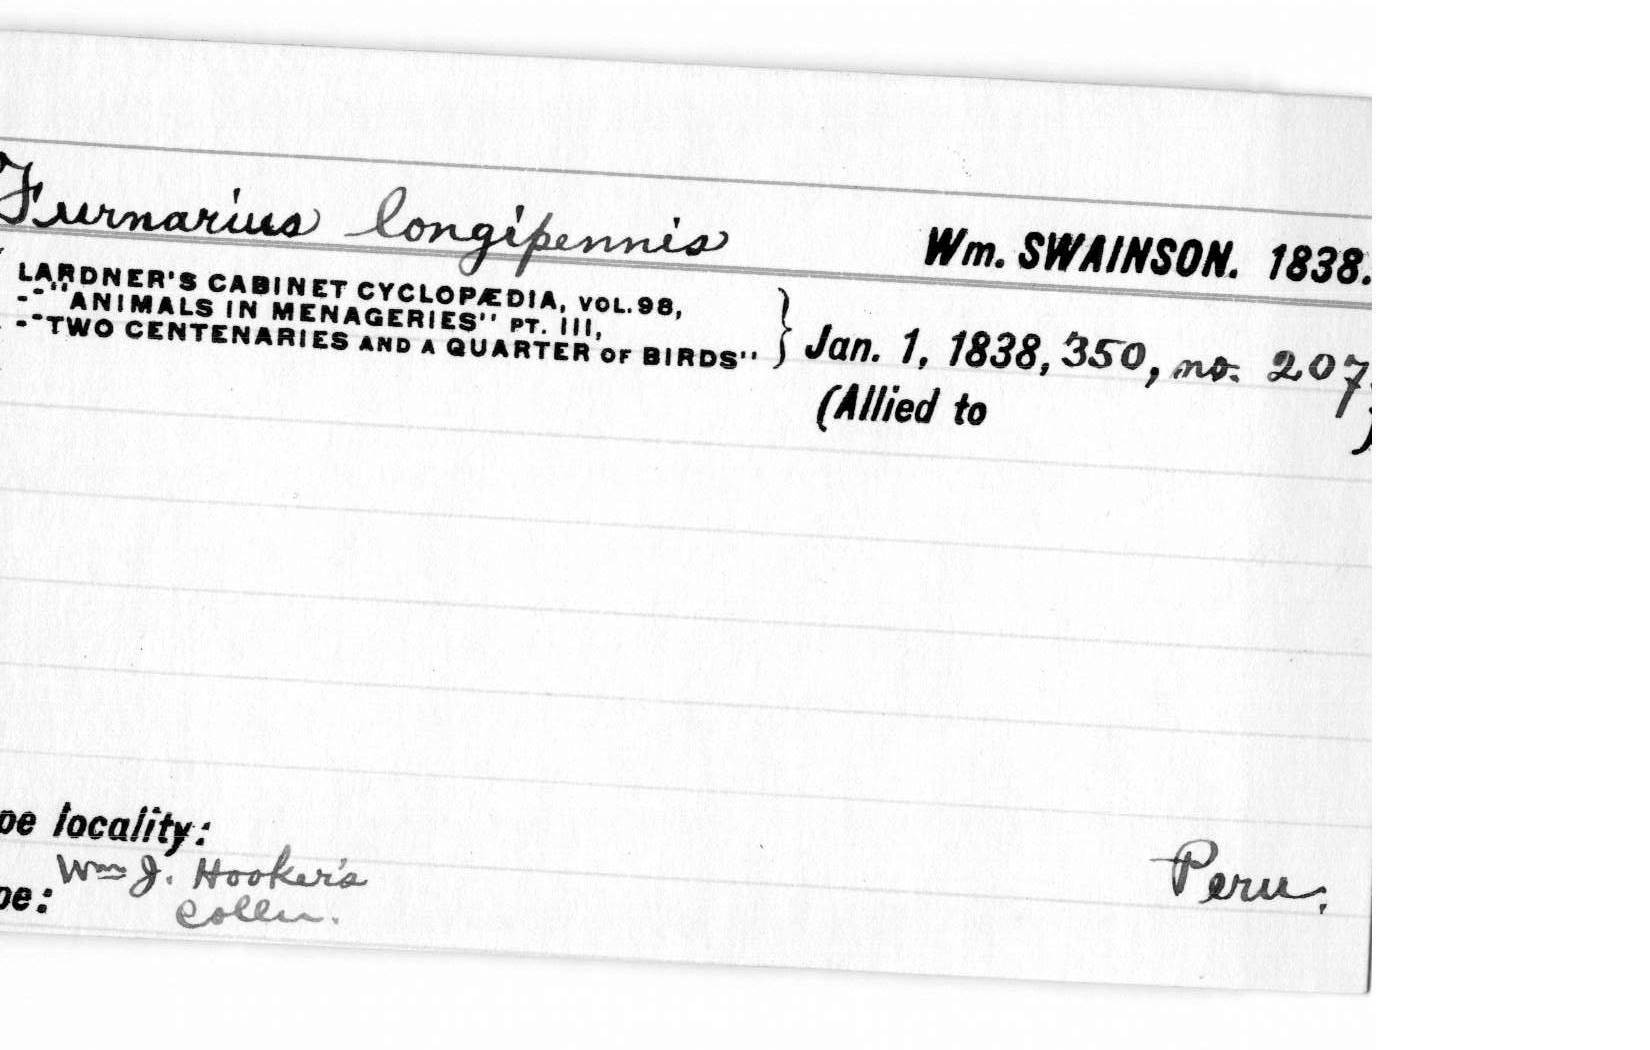 Furnarius longipennis Wm. SWAINSON. 1838.
LARDNER'S CABINET CYCLOPÆDIA, VOL. 98,
--"ANIMALS IN MENAGERIES" PT. III,
--"TWO CENTENARIES AND A QUARTER OF BIRDS" } Jan. 1, 1838, 350, no. 207;
(Allied to )
pe locality: Peru;
Wm J. Hooker's
pe: Colln.